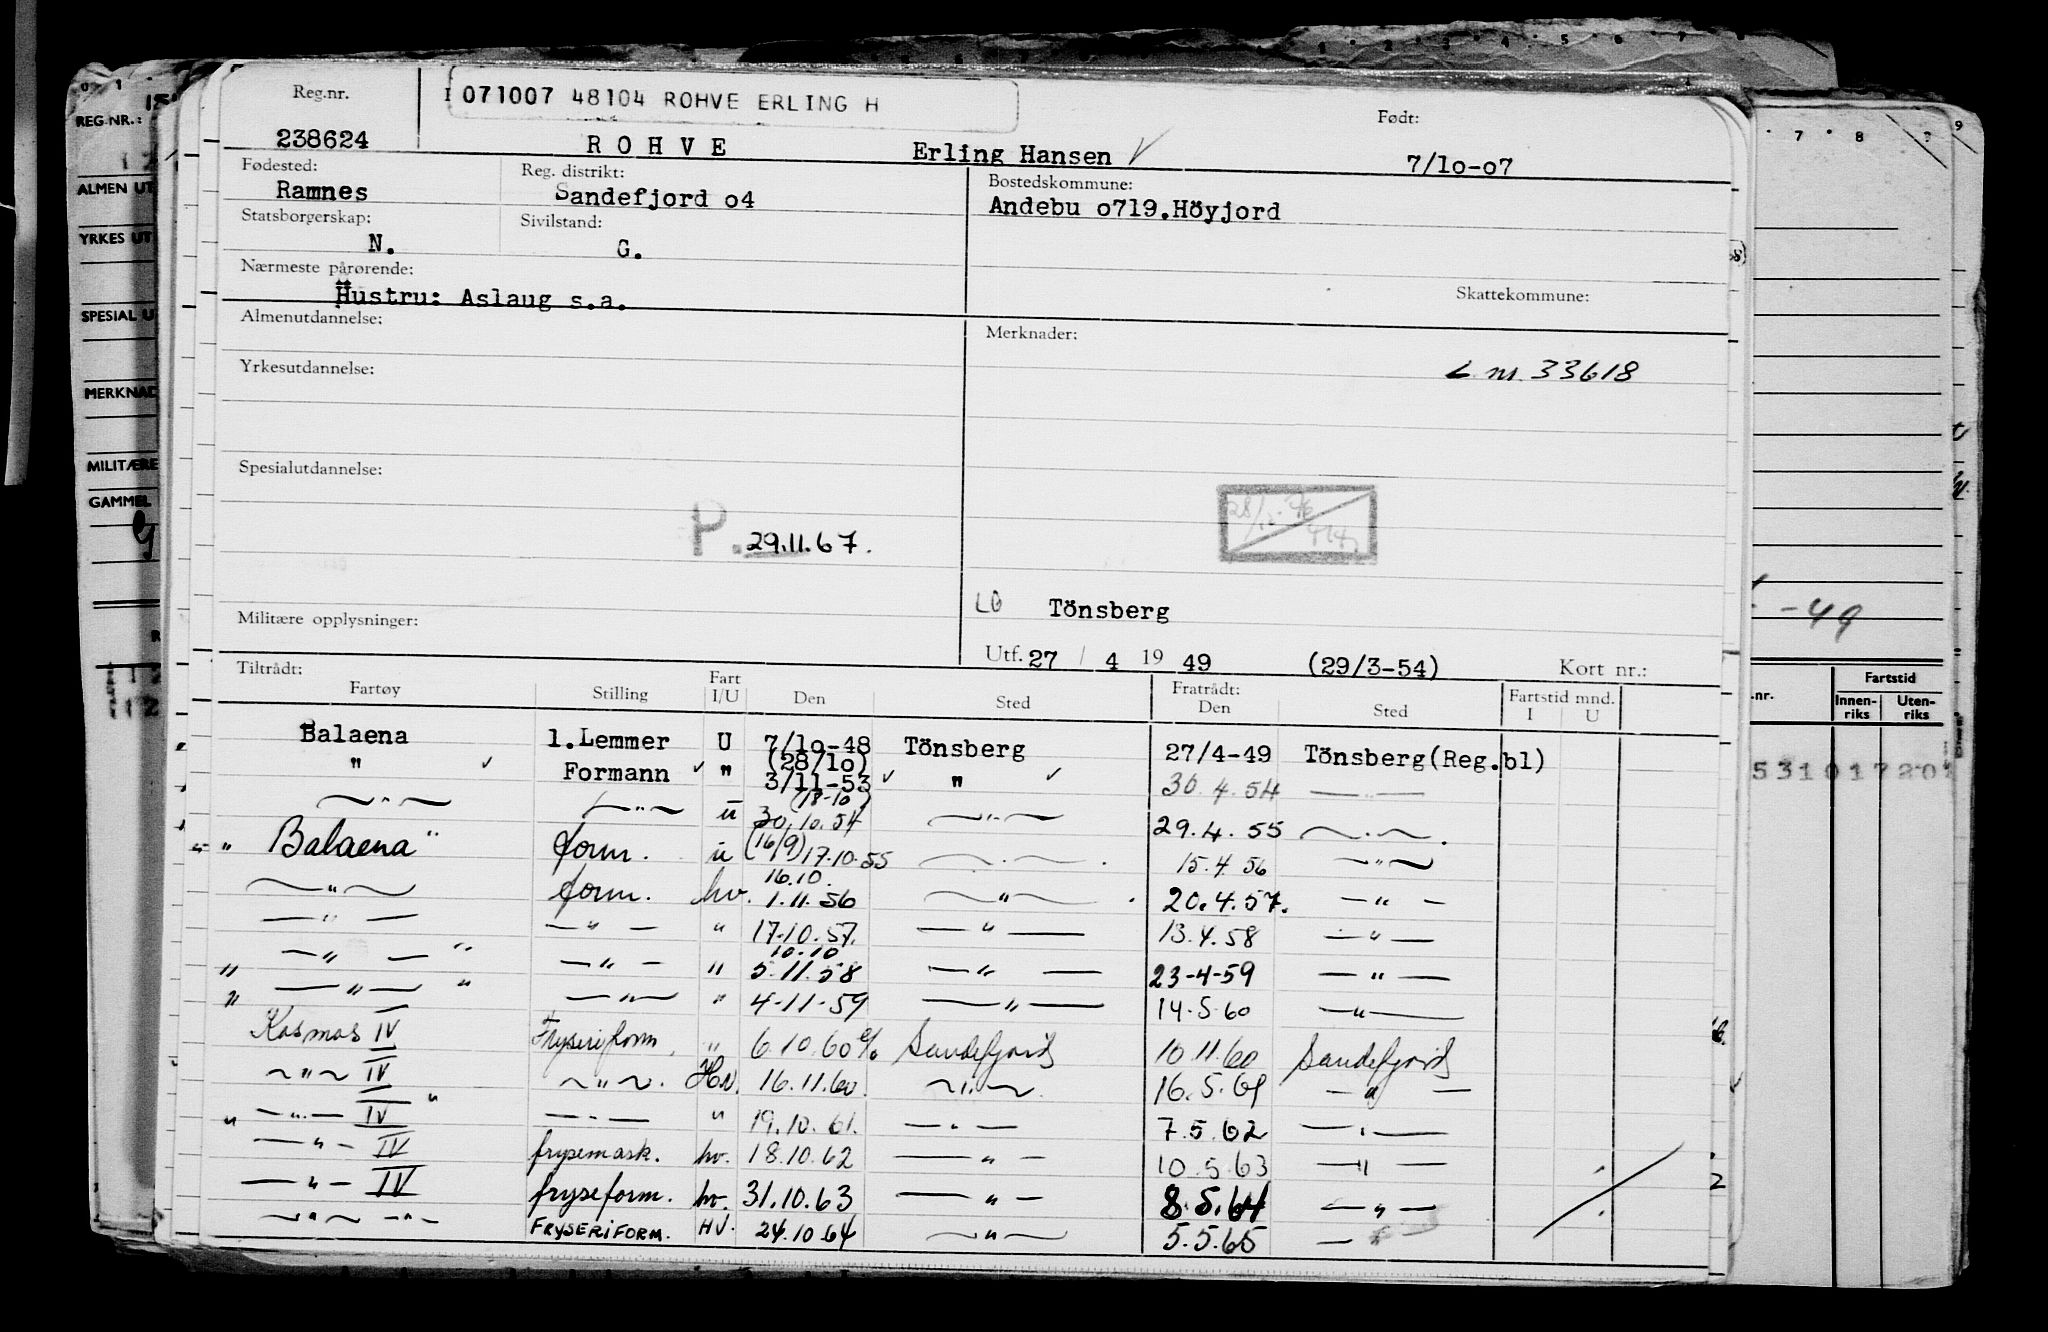 Reg.nr.
071007 48104 ROHVE ERLING H
Født:
238624 ROHVE Erling Hansen 7/lo-o7
Fødested: Reg. distrikt: Bostedskommune:
Ramnes Sandefjord o4 Andebu o719.Höyjord
Statsborgerskap: Sivilstand:
N. G.
Nærmeste pårørende:
Hustru: Aslaug s.a. Skattekommune:
Almenutdannelse: Merknader:
Yrkesutdannelse: L. nr. 33618
Spesialutdannelse:
P. 29.11.67.
LB Tönsberg
Militære opplysninger:
Utf. 27 / 4 19 49 (29/3-54) Kort nr.:
Tiltrådt: Fratrådt: Fartstid mnd.
Fartøy Stilling Fart I/U Den Sted Den Sted I U
Balaena 1.Lemmer U 7/lo-48 Tönsberg 27/4-49 Tönsberg(Reg.bl)
(28/lo)
" Formann " 3/11-53 " 30.4.54 — " —
(18-10)
— " — — " — u 30.10.54 — " — 29.4.55 — " —
" Balaena " form. u (16/9) 17.10.55 — " — 15.4.56 — " —
16.10.
— " — form. hv. 1.11.56 — " — 20.4.57. — " —
— " — — " — " 17.10.57. — " — 13.4.58 — " —
10.10
— " — " — " — " 5.11.58 — " — 23-4-59 — " —
" — " — " — " — " 4-11-59 — " — 14.5.60 — " —
" Kosmos IV Fryseriform. " 6.10.60 Sandefjord 10.11.60 Sandefjord
— " — IV — " — . Hv. 16.11.60. — " — 16.5.61 — " —
" — " — IV " — " — " 19.10.61. — " — 7.5.62 — " —
— " — IV frysemask. hv. 18.10.62 — " — 10.5.63 — " —
— " — IV fryseform. hv. 31.10.63 — " — 8.5.64 — " —
— " — — " — FRYSERIFORM. HV. 24.10.64 — " — 5.5.65 —
REG.NR.:
ALMEN UT
YRKES UT
SPESIAL U
MERKNAD
MILITÆRE
GAMMEL
7 8 9
-49
.nr. Fartstid
Innen-riks Uten-riks
531017201